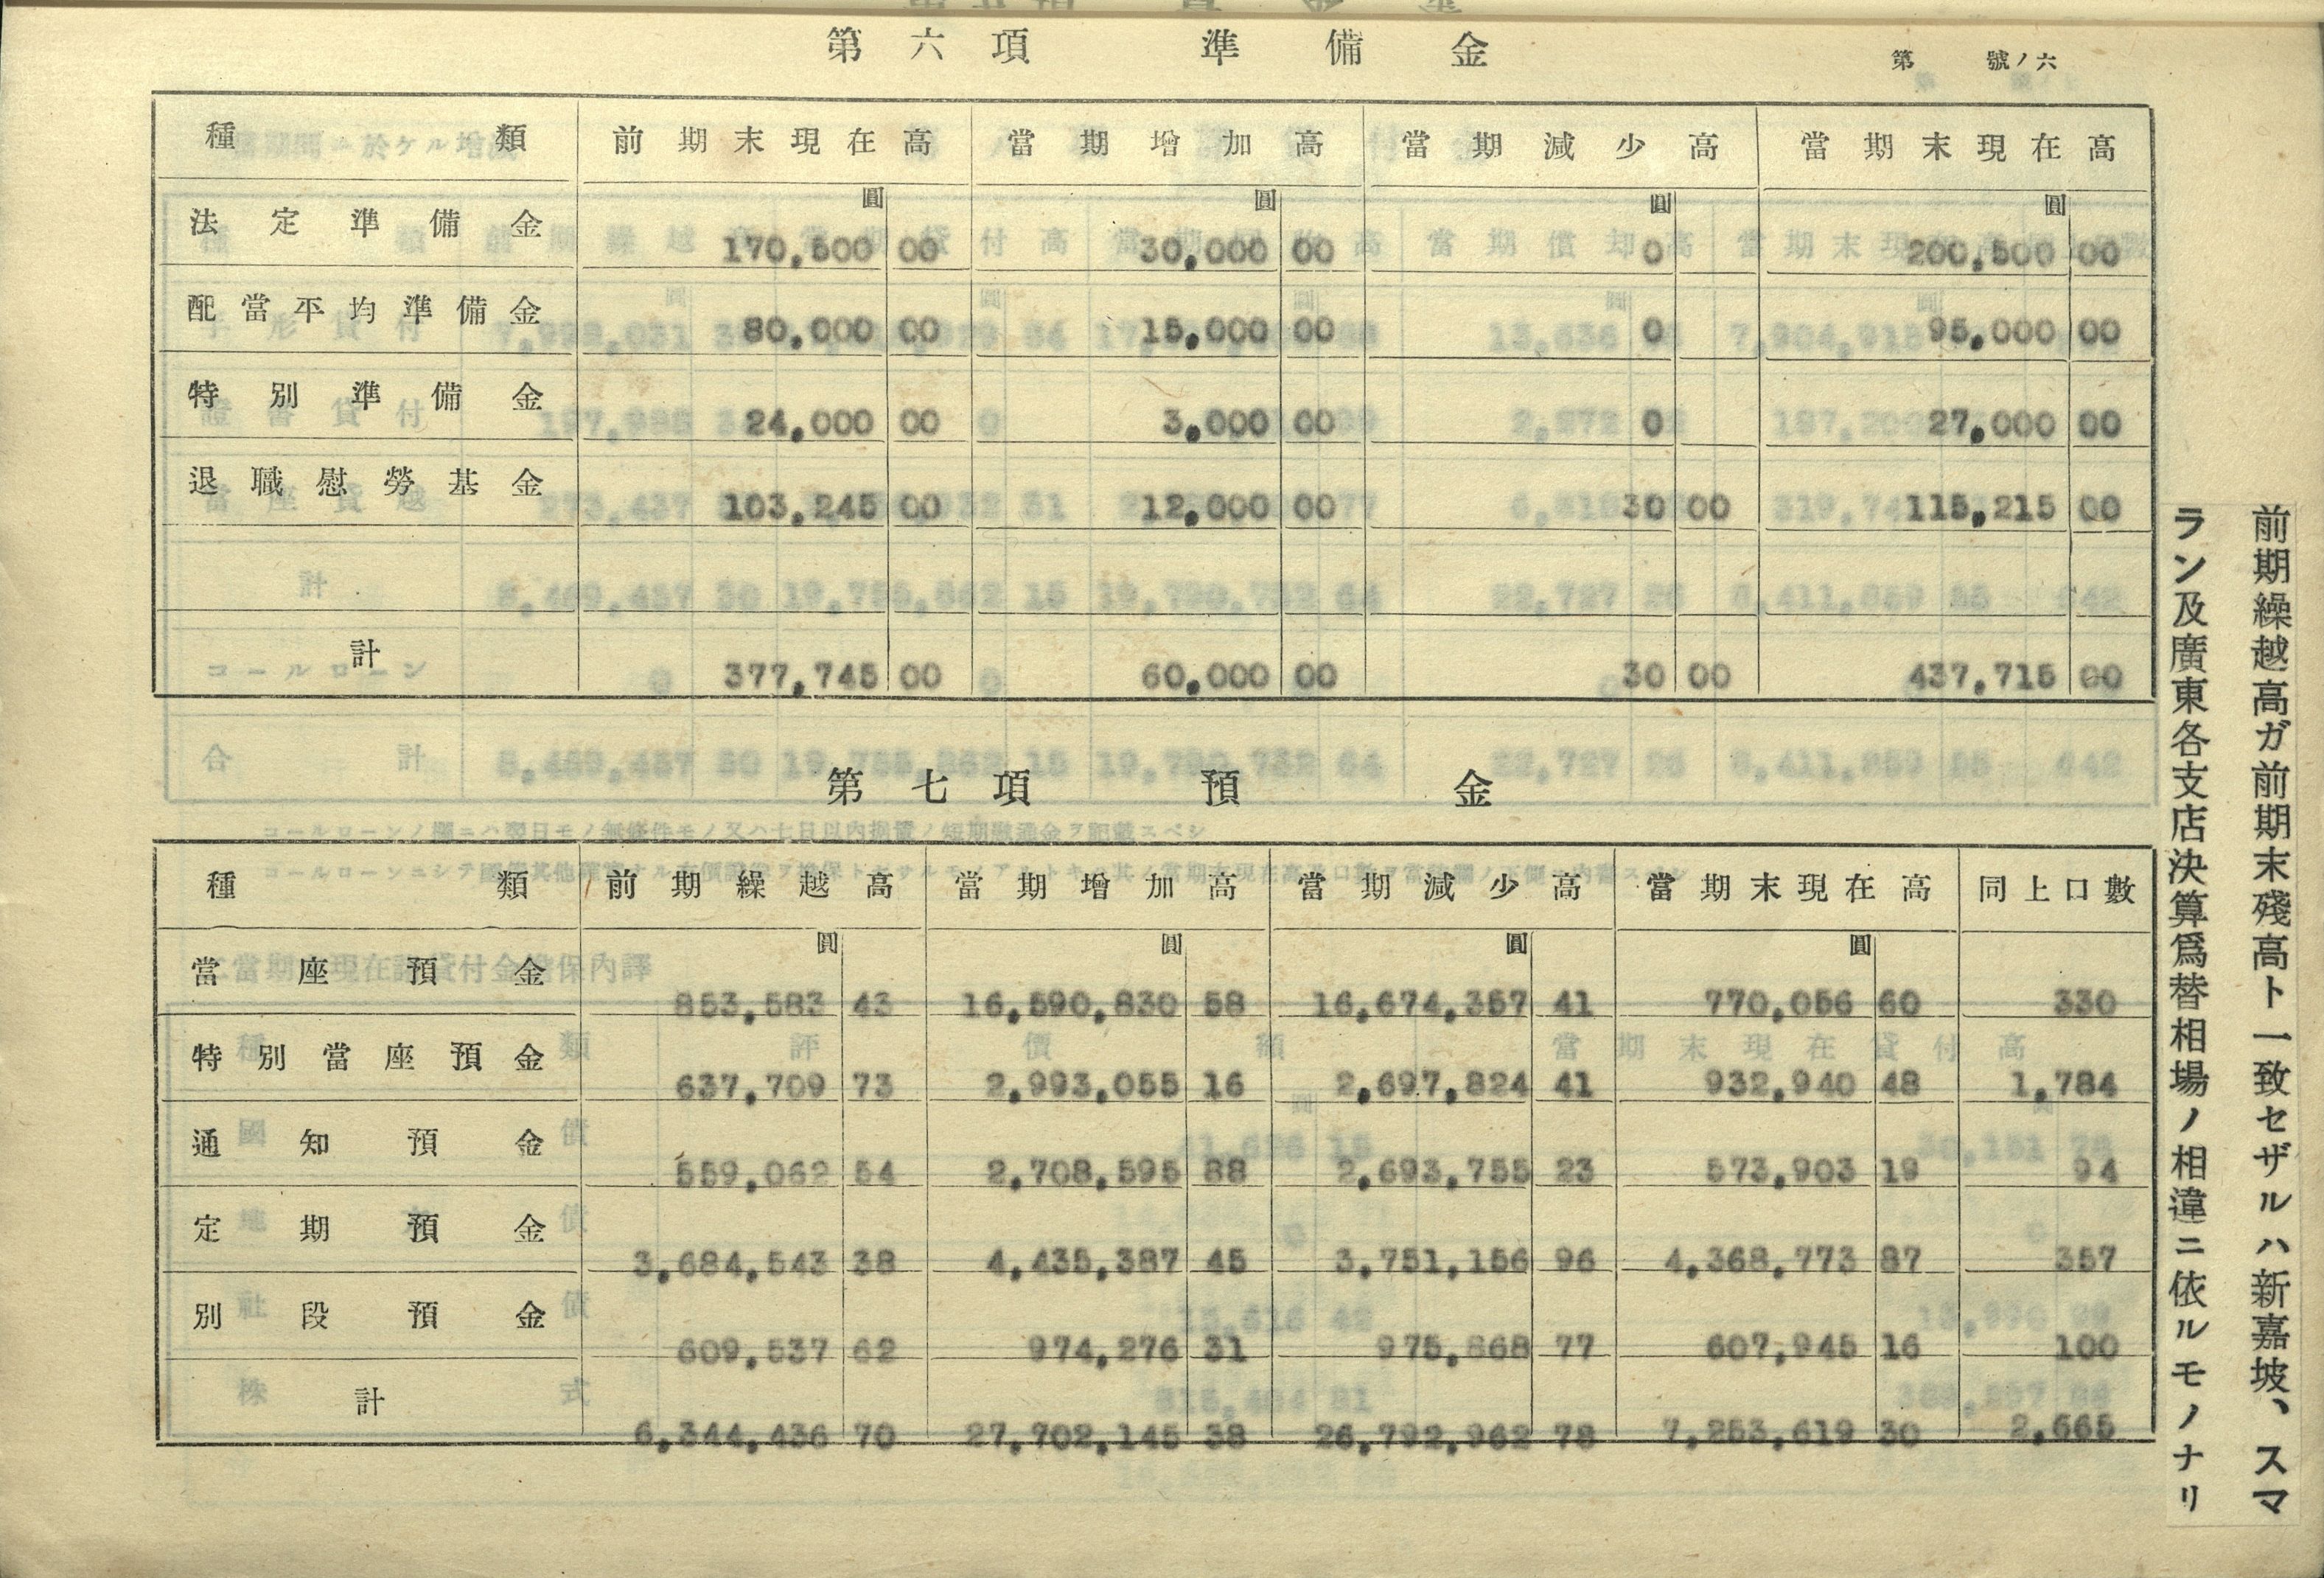 第六項 準備金
第 號ノ六
種類 前期末現在高 當期增加高 當期減少高 當期末現在高
圓 圓 圓 圓
法定準備金 170,500 00 30,000 00 0 200,500 00
配當平均準備金 80,000 00 15,000 00 0 95,000 00
特別準備金 24,000 00 3,000 00 0 27,000 00
退職慰勞基金 103,245 00 12,000 00 30 00 115,215 00
計 377,745 00 60,000 00 30 00 437,715 00
第七項 預金
種類 前期繰越高 當期增加高 當期減少高 當期末現在高 同上口數
圓 圓 圓 圓
當座預金 853,583 43 16,590,830 58 16,674,357 41 770,056 60 330
特別當座預金 637,709 73 2,993,055 16 2,697,824 41 932,940 48 1,784
通知預金 559,062 54 2,708,595 88 2,693,755 23 573,903 19 94
定期預金 3,684,543 38 4,435,387 45 3,751,156 96 4,368,773 87 357
別段預金 609,537 62 974,276 31 975,868 77 607,945 16 100
計 6,344,436 70 27,702,145 38 26,792,962 78 7,253,619 30 2,665
前期繰越高ガ前期末殘高ト一致セザルハ新嘉坡、スマ
ラン及廣東各支店決算爲替相場ノ相違ニ依ルモノナリ